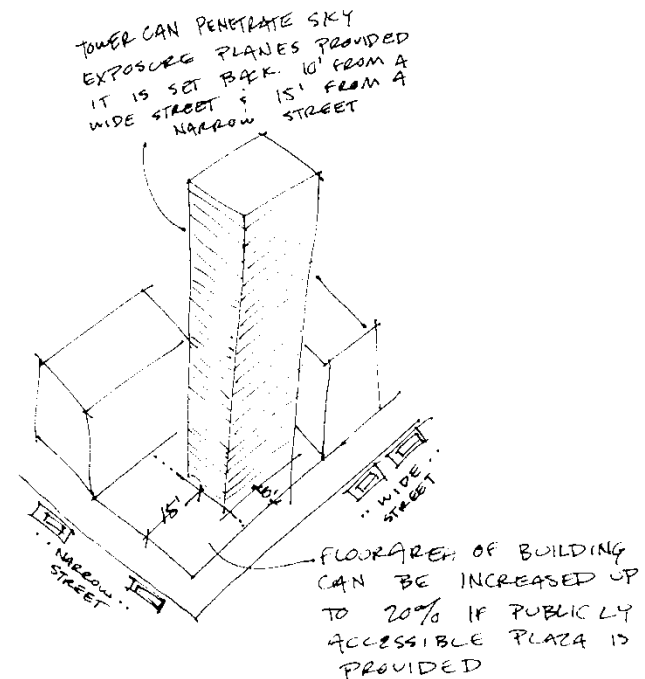 TOWER CAN PENETRATE SKY
EXPOSURE PLANES PROVIDED
IT IS SET BACK 10' FROM A
WIDE STREET & 15' FROM A
NARROW STREET
15'
10'
.. WIDE ..
STREET
.. NARROW ..
STREET
FLOOR AREA OF BUILDING
CAN BE INCREASED UP
TO 20% IF PUBLICLY
ACCESSIBLE PLAZA IS
PROVIDED